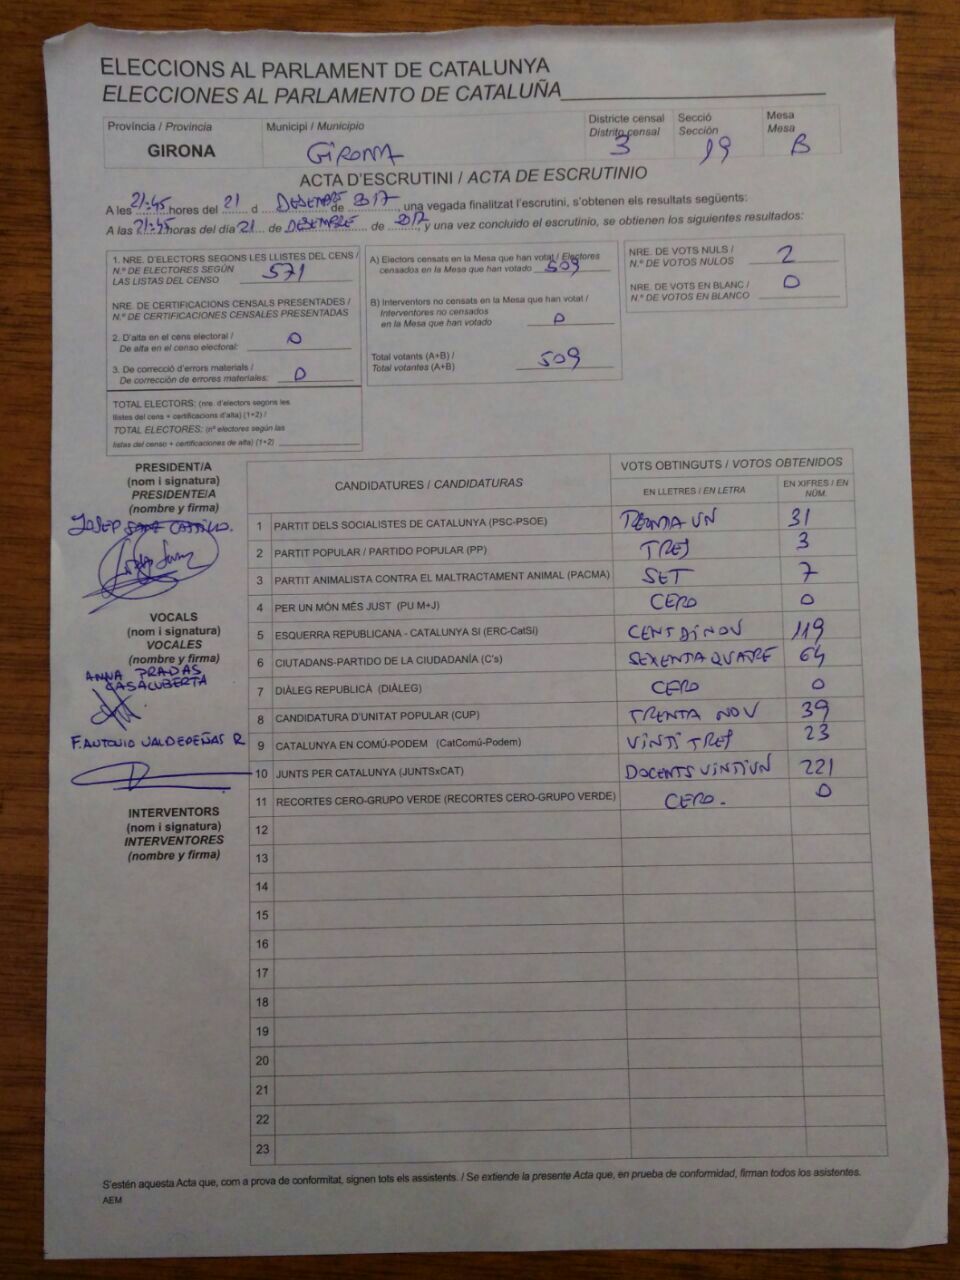 ELECCIONS AL PARLAMENT DE CATALUNYA
ELECCIONES AL PARLAMENTO DE CATALUÑA
Província / Provincia
GIRONA
Municipi / Municipio
GIRONA
Districte censal
Distrito censal
3
Secció
Sección
19
Mesa
Mesa
B
ACTA D'ESCRUTINI / ACTA DE ESCRUTINIO
A les 21:45 hores del 21 d DESEMBRE de 2017, una vegada finalitzat l'escrutini, s'obtenen els resultats següents:
A las 21:45 horas del día 21 de DESEMBRE de 2017, y una vez concluido el escrutinio, se obtienen los siguientes resultados:
1. NRE. D'ELECTORS SEGONS LES LLISTES DEL CENS /
N.º DE ELECTORES SEGÚN
LAS LISTAS DEL CENSO 571
NRE. DE CERTIFICACIONS CENSALS PRESENTADES /
N.º DE CERTIFICACIONES CENSALES PRESENTADAS
2. D'alta en el cens electoral /
De alta en el censo electoral: 0
3. De correcció d'errors materials /
De corrección de errores materiales: 0
TOTAL ELECTORS: (nre. d'electors segons les
llistes del cens + certificacions d'alta) (1+2) /
TOTAL ELECTORES: (nº electores según las
listas del censo + certificaciones de alta) (1+2)
A) Electors censats en la Mesa que han votat / Electores
censados en la Mesa que han votado 509
B) Interventors no censats en la Mesa que han votat /
Interventores no censados
en la Mesa que han votado 0
Total votants (A+B) /
Total votantes (A+B) 509
NRE. DE VOTS NULS /
N.º DE VOTOS NULOS 2
NRE. DE VOTS EN BLANC /
N.º DE VOTOS EN BLANCO 0
PRESIDENT/A
(nom i signatura)
PRESIDENTE/A
(nombre y firma)
JOSEP
VOCALS
(nom i signatura)
VOCALES
(nombre y firma)
ANNA PRADAS
CASACUBERTA
F. ANTONIO VALDEPEÑAS R
INTERVENTORS
(nom i signatura)
INTERVENTORES
(nombre y firma)
CANDIDATURES / CANDIDATURAS
VOTS OBTINGUTS / VOTOS OBTENIDOS
EN LLETRES / EN LETRA
EN XIFRES / EN
NÚM.
1 PARTIT DELS SOCIALISTES DE CATALUNYA (PSC-PSOE) TRENTA UN 31
2 PARTIT POPULAR / PARTIDO POPULAR (PP) TRES 3
3 PARTIT ANIMALISTA CONTRA EL MALTRACTAMENT ANIMAL (PACMA) SET 7
4 PER UN MÓN MÉS JUST (PU M+J) CERO 0
5 ESQUERRA REPUBLICANA - CATALUNYA SÍ (ERC-CatSí) CENT DINOU 119
6 CIUTADANS-PARTIDO DE LA CIUDADANÍA (C's) SEXENTA QUATRE 64
7 DIÀLEG REPUBLICÀ (DIÀLEG) CERO 0
8 CANDIDATURA D'UNITAT POPULAR (CUP) TRENTA NOU 39
9 CATALUNYA EN COMÚ-PODEM (CatComú-Podem) VINTI TRES 23
10 JUNTS PER CATALUNYA (JUNTSxCAT) DOCENTS VINTIUN 221
11 RECORTES CERO-GRUPO VERDE (RECORTES CERO-GRUPO VERDE) CERO. 0
12
13
14
15
16
17
18
19
20
21
22
23
S'estén aquesta Acta que, com a prova de conformitat, signen tots els assistents. / Se extiende la presente Acta que, en prueba de conformidad, firman todos los asistentes.
AEM